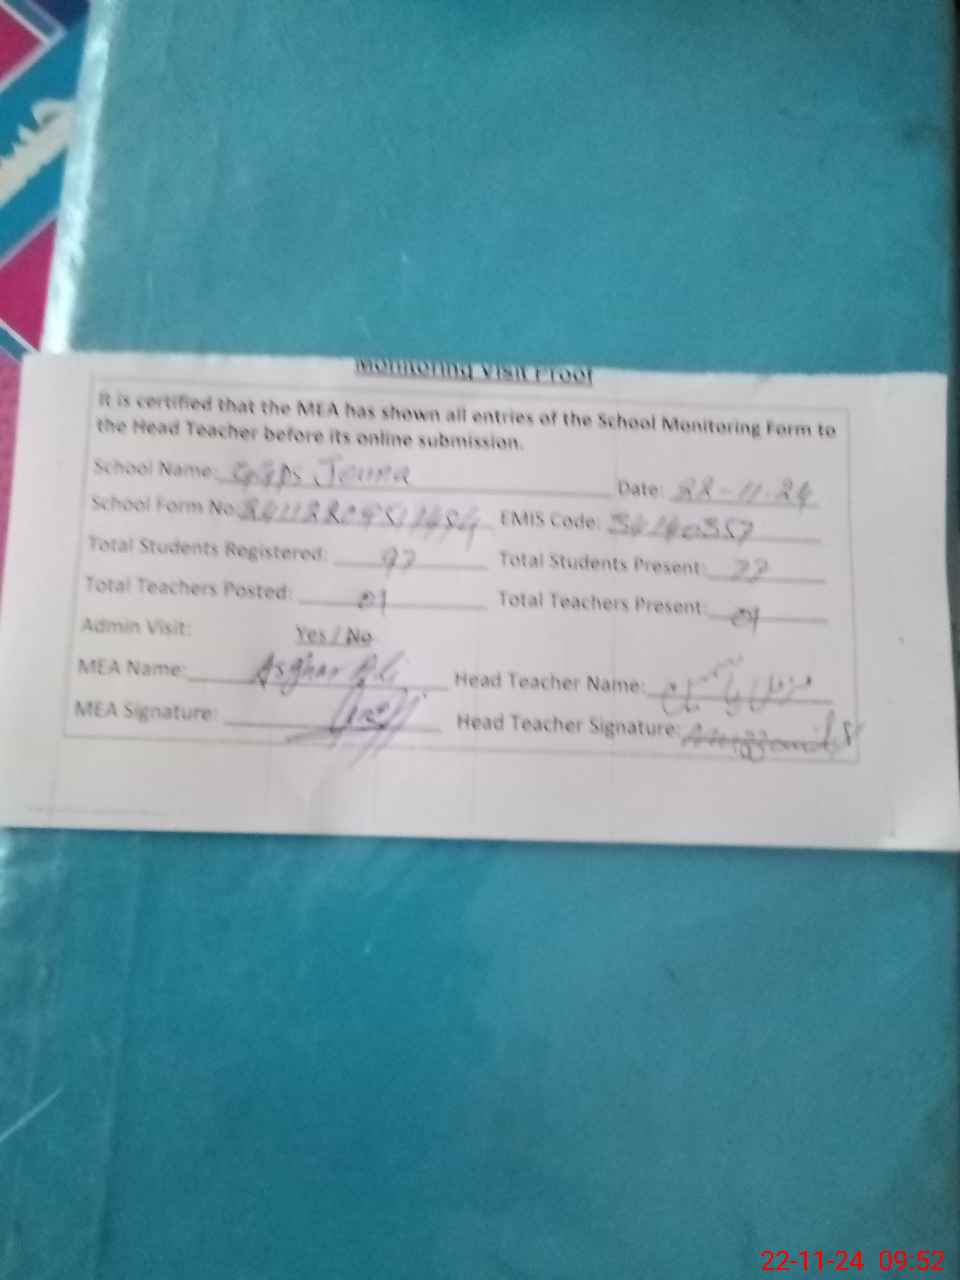 Monitoring Visit Proof
It is certified that the MEA has shown all entries of the School Monitoring Form to
the Head Teacher before its online submission.
School Name: GGPS Date: 22-11-24
School Form No: EMIS Code: 34140357
Total Students Registered: 97 Total Students Present: 77
Total Teachers Posted: 01 Total Teachers Present: 01
Admin Visit: Yes / No
MEA Name: Asghar Ali Head Teacher Name:
MEA Signature: Head Teacher Signature:
22-11-24 09:52